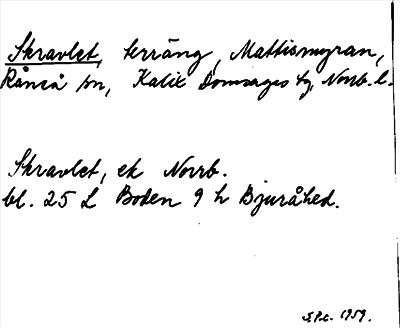 Skravlet, terräng, Mattismyran,
Råneå sn, Kalix Domsagas tg, Norrb. l.
Skravlet, ek Norrb.
bl. 25 L Boden 9 h Bjuråhed.
1959.